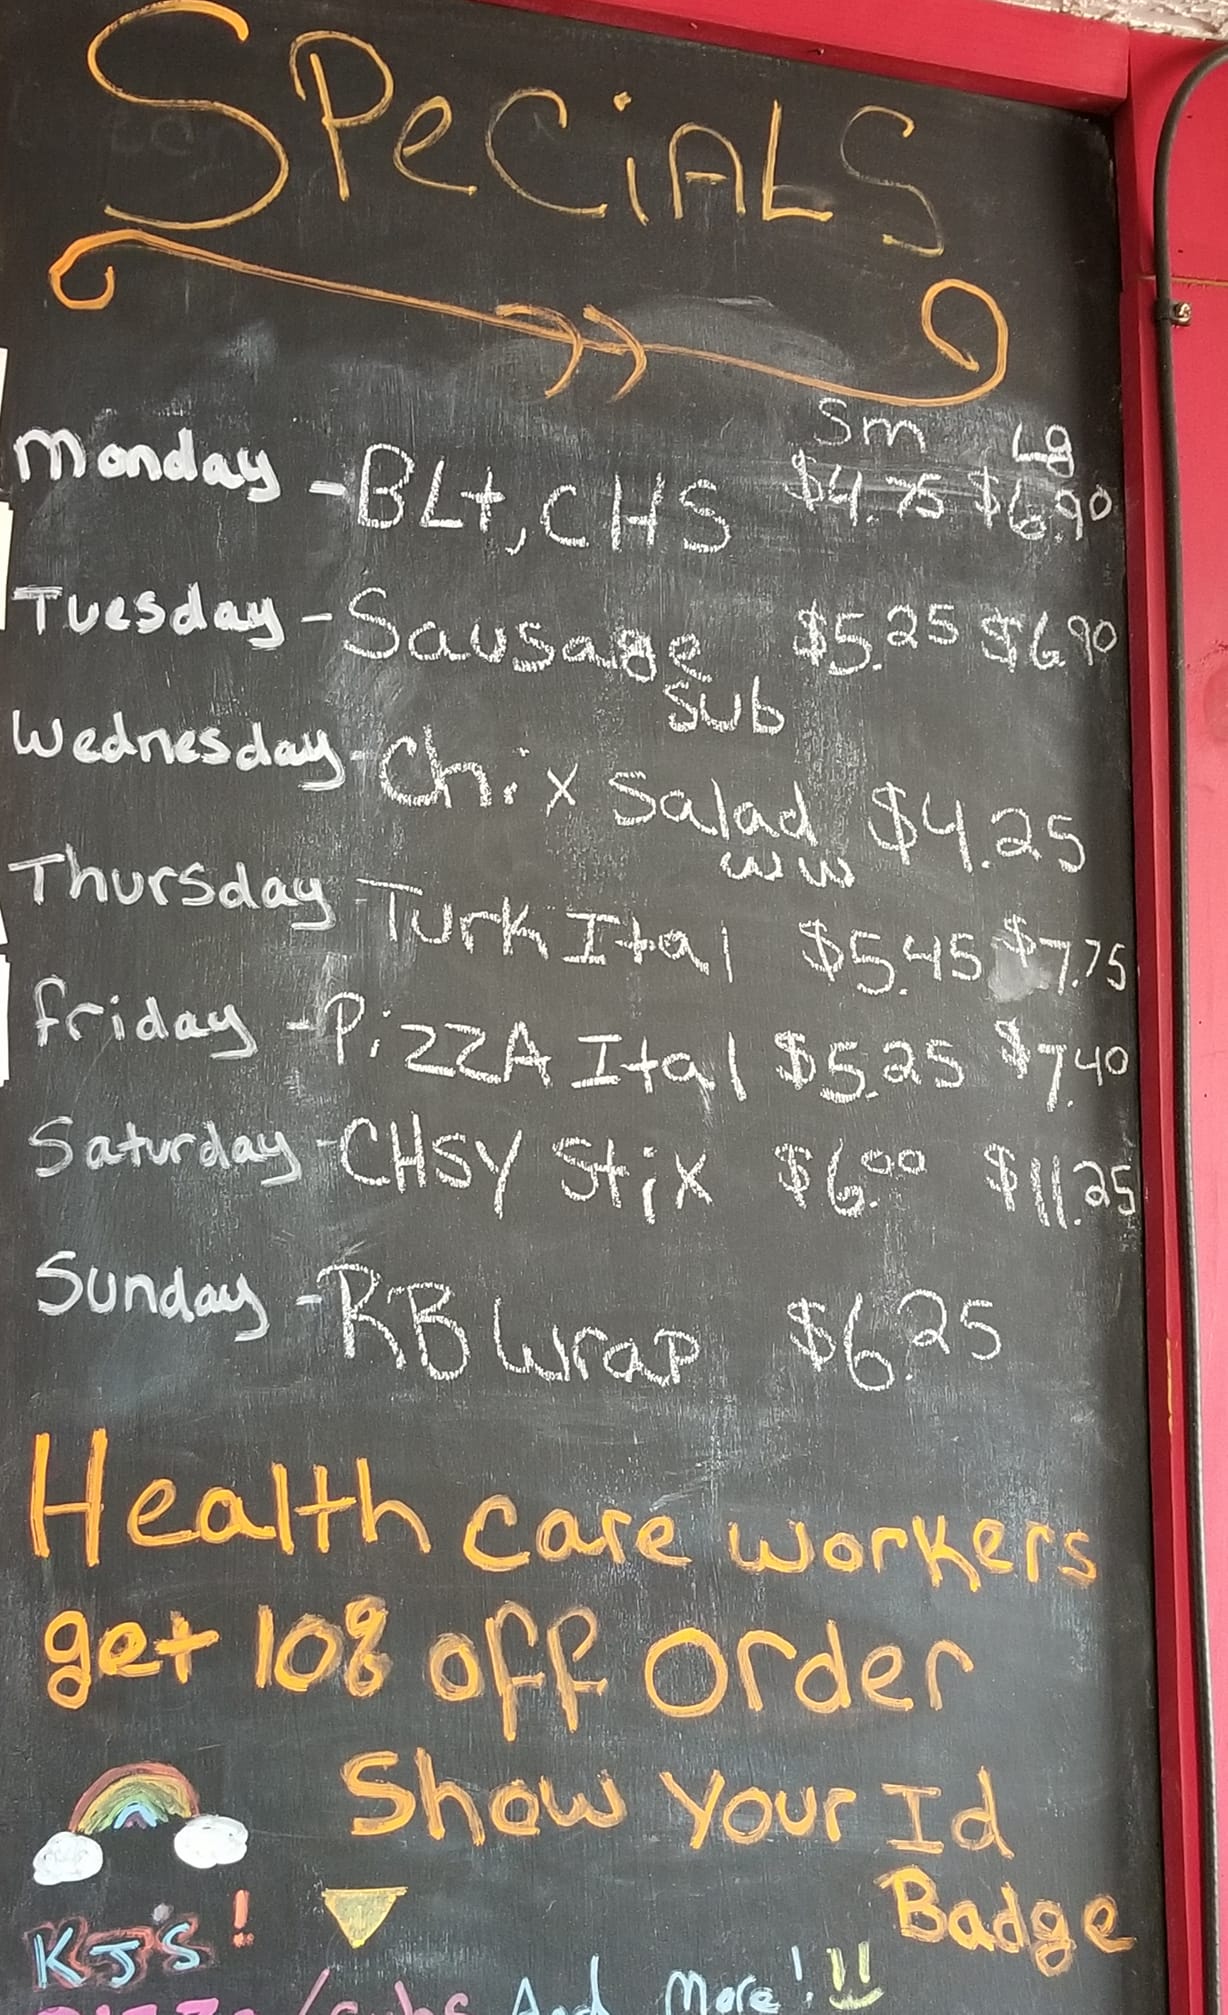 SPeCiALS
Sm Lg
Monday - BLt, CHS $4.75 $6.90
Tuesday - Sausage $5.25 $6.90
Sub
Wednesday - Chix Salad $4.25
ww
Thursday - Turk Ital $5.45 $7.75
friday - PiZZA Ital $5.25 $7.40
Saturday - CHSY Stix $6.00 $11.25
Sunday - RB Wrap $6.25
Health care workers
get 10% off order
Show Your Id
Badge
KJ'S!
PIZZA/subs And More!!!